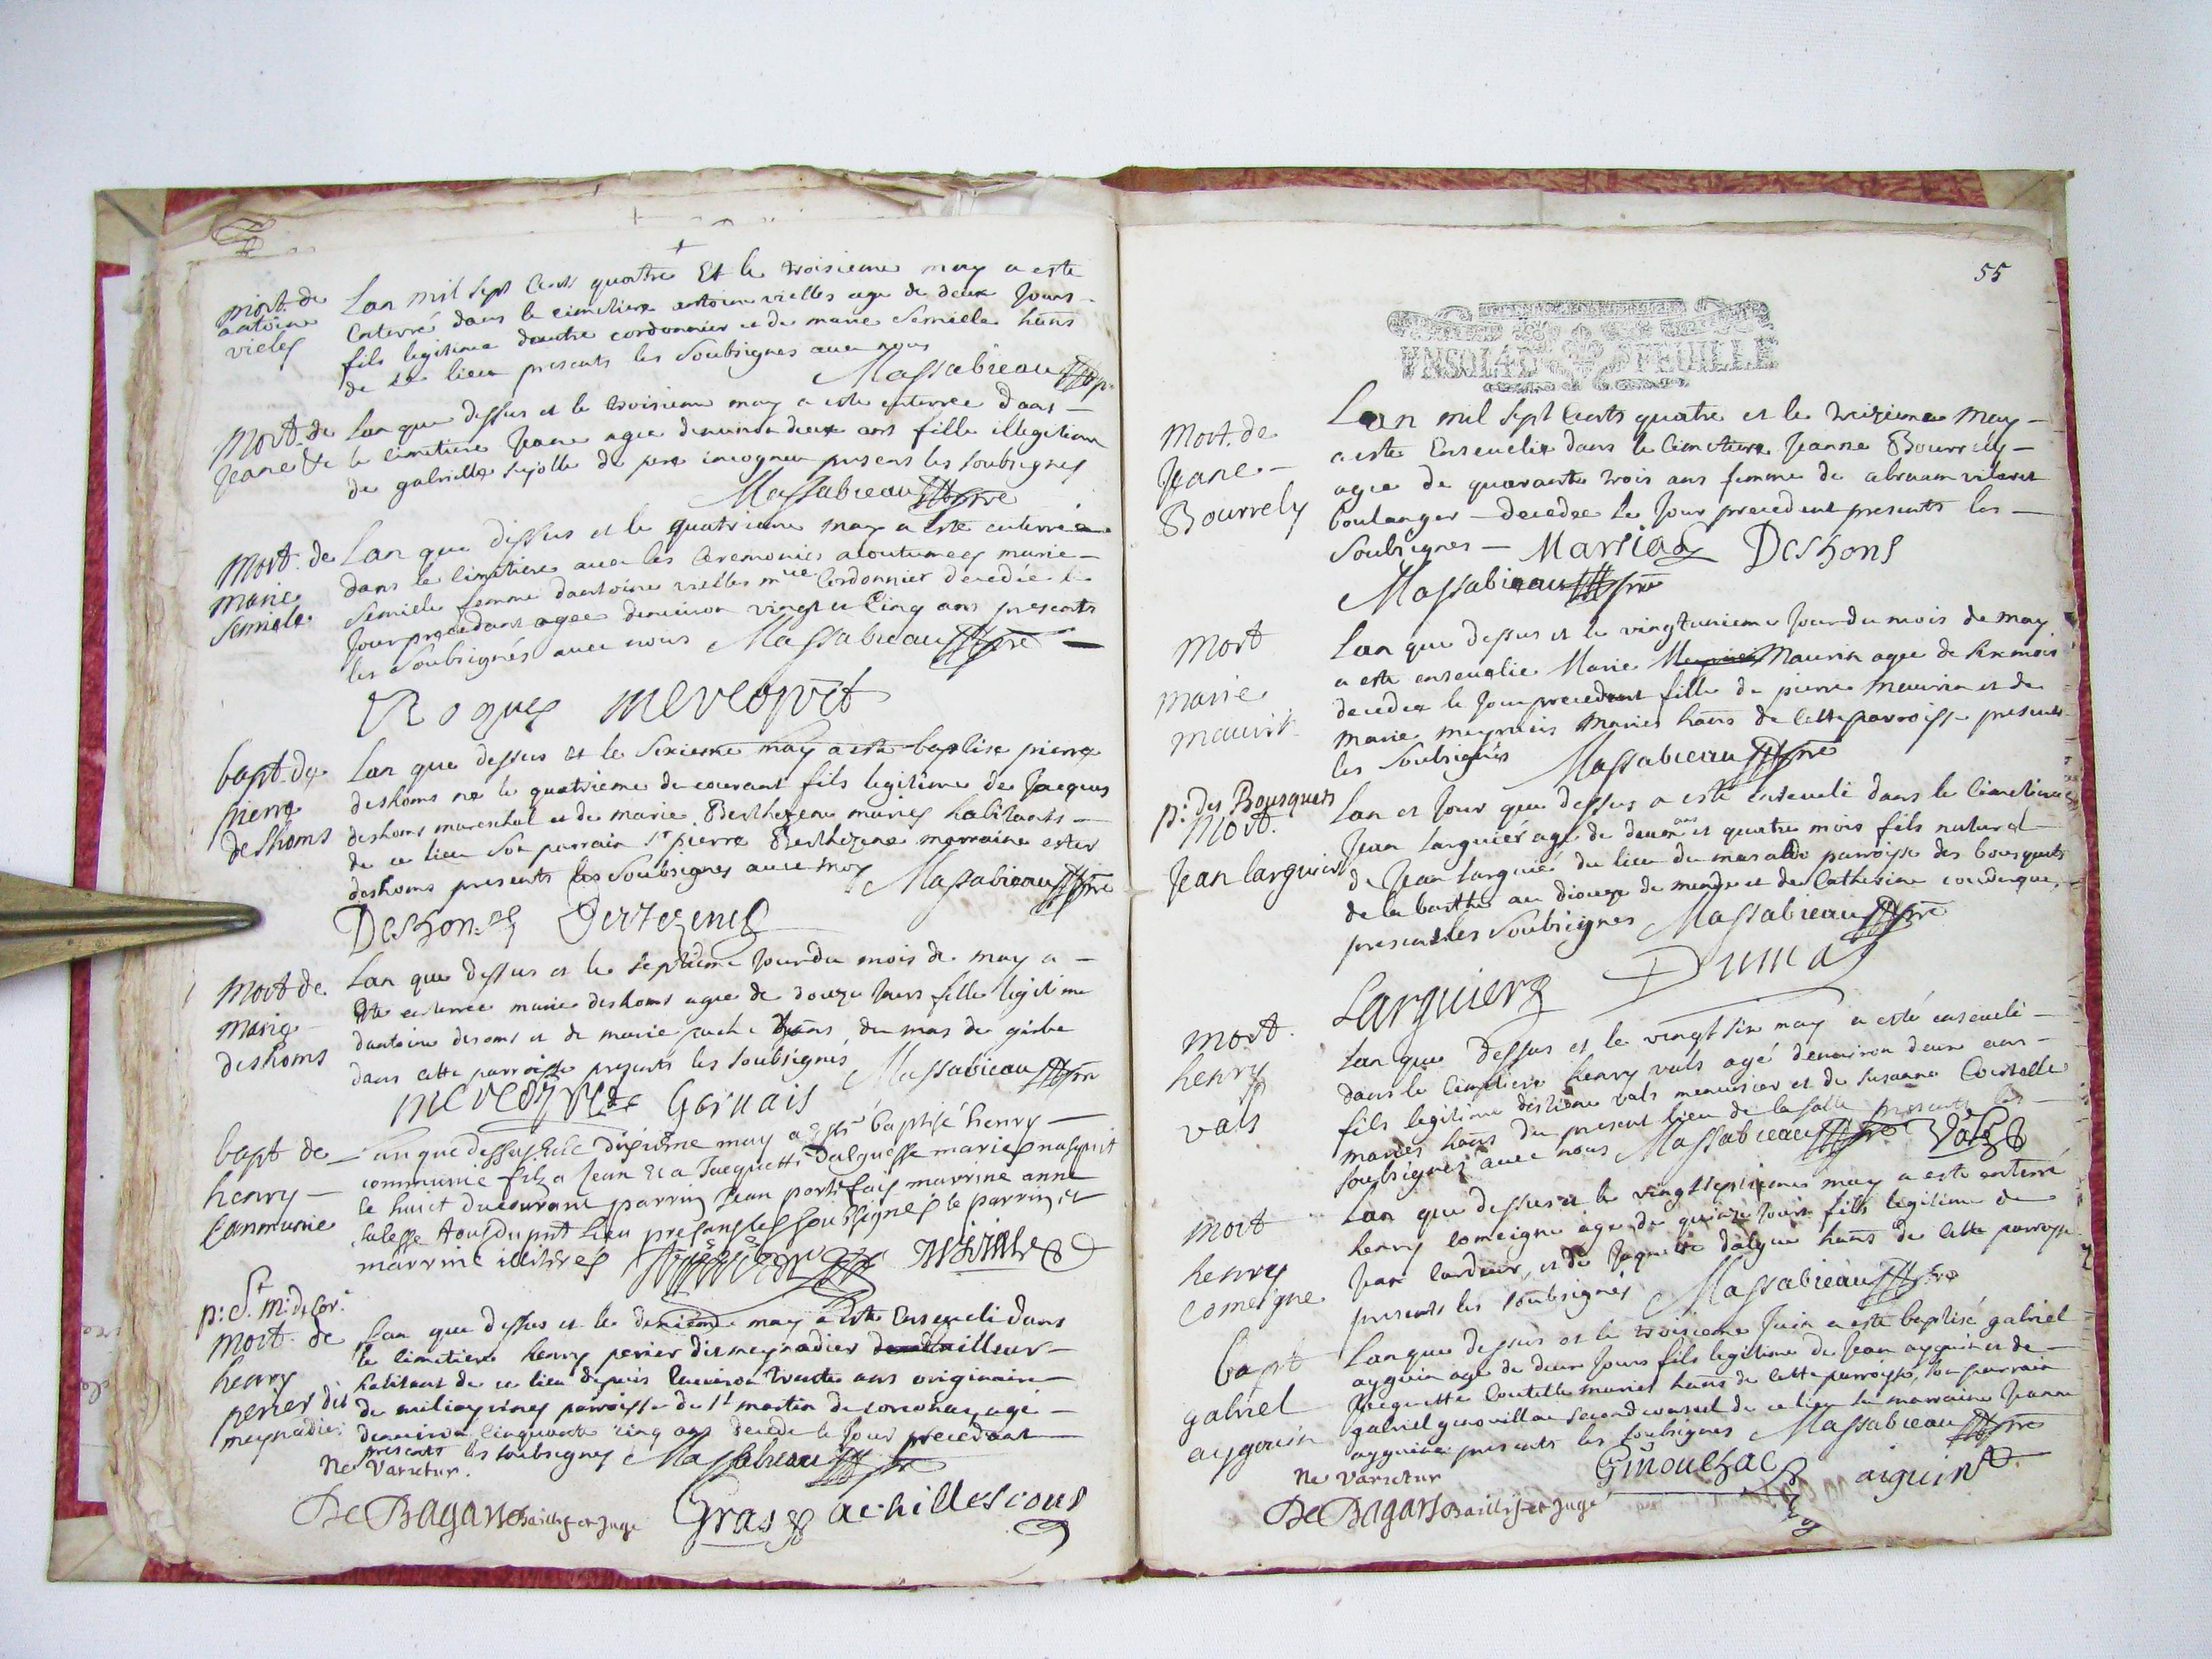 mort. de
antoine
vieles
Lan mil sept cents quatre Et le troisieme may a este
Enterré dans le cimetiere antoine vielles age de deux Jours
fils legitime dautre cordonnier et de marie Semiele hans
de ce lieu presents les Soubsignes avec nous
Massabieau ptre
Mort. de
Jeane
Lan que dessus et le troisieme may a este enterree dans
le cimetiere Jeane agee denviron deux ans fille illegitime
de gabrielle de pere incogneu presens les soubsignes
Massabieau ptre
Mort. de
marie
Semiele
Lan que dessus et le quatrieme may a este enterrée
dans le cimetiere avec les Ceremonies acoutumees marie
Semiele femme dantoine vielles mtre Cordonnier decedée le
Jour precedant agee denviron vingt et Cinq ans presents
les Soubsignés avec nous Massabieau ptre
Roques
bapt. de
pierre
deshoms
Lan que dessus et le Sixieme may a este baptise pierre
deshoms ne le quatrieme du courant fils legitime de Jacques
deshoms mareschal et de marie Berthezene maries habitants
de ce lieu Son parrain Sr pierre Berthezene marraine ester
deshoms presents les Soubsignes avec moy Massabieau ptre
Deshons Bertezene
Mort de
marie
deshoms
Lan que dessus et le septieme Jour du mois de may a
este enterree marie deshoms agee de douze Jours fille legitime
dantoine desoms et de marie hans du mas de
dans cette parroisse presents les soubsignés Massabieau ptre
Geruais
bapt de
henry
Commeine
Lan que dessus Et le dixiéme may a esté baptisé henry
fils a Jean Et a Jacquette Dalguesse mariés nasquit
le huict du courant parrin Jean portefais marrine anne
Salesse tous du pnt lieu presans les soubsignés le parrin et
marrine illitérés
p: St. m: de Cor:
mort. de
henry
perier dit
meynadier
Lan que dessus et le dixieme may a este Enseveli dans
le cimetiere henry perier dit meynadier tailleur
habitant de ce lieu depuis Environ trente ans originaire
de parroisse de St martin de agé
denviron Cinquante cinq ans decede le Jour precedant
presents les soubsignes Massabieau ptre
Ne Varietur.
De Bagars Bailly et Juge Gras achillescous
55
UN SOL 4 D. FEUILLE
Mort. de
Jeane
Bourrely
Lan mil sept Cents quatre et le treizieme May
a este Ensevelie dans le Cimetiere Jeanne Bourrely
agee de quarante trois ans femme de abraam
boulanger decedee le Jour precedent presents les
Soubsignes Marsial Deshons
Massabieau ptre
Mort
marie
maurin
Lan que dessus et le vingtunieme Jour du mois de may
a este ensevelie Marie Maurin agee de six mois
decedee le Jour precedent fille de pierre maurin et de
marie maries hans de Cette parroisse presents
les Soubsignés Massabieau ptre
p: des Bousquets
Mort.
Jean larguier
Lan et Jour que dessus a esté Enseveli dans le Cimetiere
Jean larguier age de deux ans et quatre mois fils naturel
de Jean larguié du lieu du parroisse des bousquets
de la barthe au dioceze de mende et de Catherine
presens les Soubsignes Massabieau ptre
Larguier Dumas
mort.
henry
vals
Lan que dessus et le vingt six may a esté enseveli
dans le Cimetiere henry vals agé denviron deux ans
fils legitime destiene vals menuisier et de susanne Courtelle
mariés hans du present lieu de la salle presents les
Soubsignes avec nous Massabieau ptre Vals
mort
henry
comeigne
Lan que dessus et le vingt septieme may a este enterré
henry comeigne age de quinze Jours fils legitime de
Jean Cardeur, et de Jaquette dalgue hans de Cette parroisse
presents les soubsignés Massabieau ptre
bapt
gabriel
aygouin
Lan que dessus et le troisieme Juin a este baptisé gabriel
ayguin age de deux Jours fils legitime de Jean ayguin et de
Jacquette Coutelle maries hans de Cette parroisse, Son parrain
gabriel ginouillac second consul de ce lieu sa marraine Jeanne
presents les soubsignes Massabieau ptre
Ne Varietur Ginoulhac aiguin
De Bagars Bailly et Juge